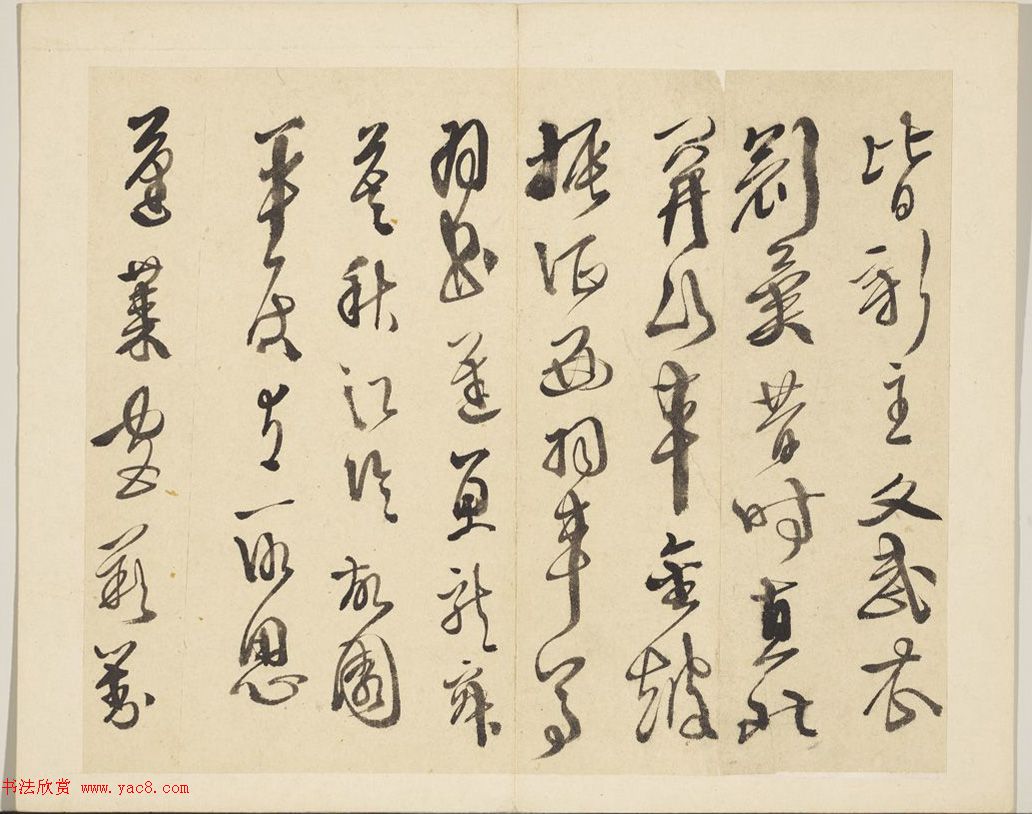 皆新主文武衣
冠異昔時直北
關山車金鼓
振征西車馬
羽書遲魚龍寂
寞秋江冷故國
平居有所思
蓬萊宮闕對
书法欣赏 www.yac8.com